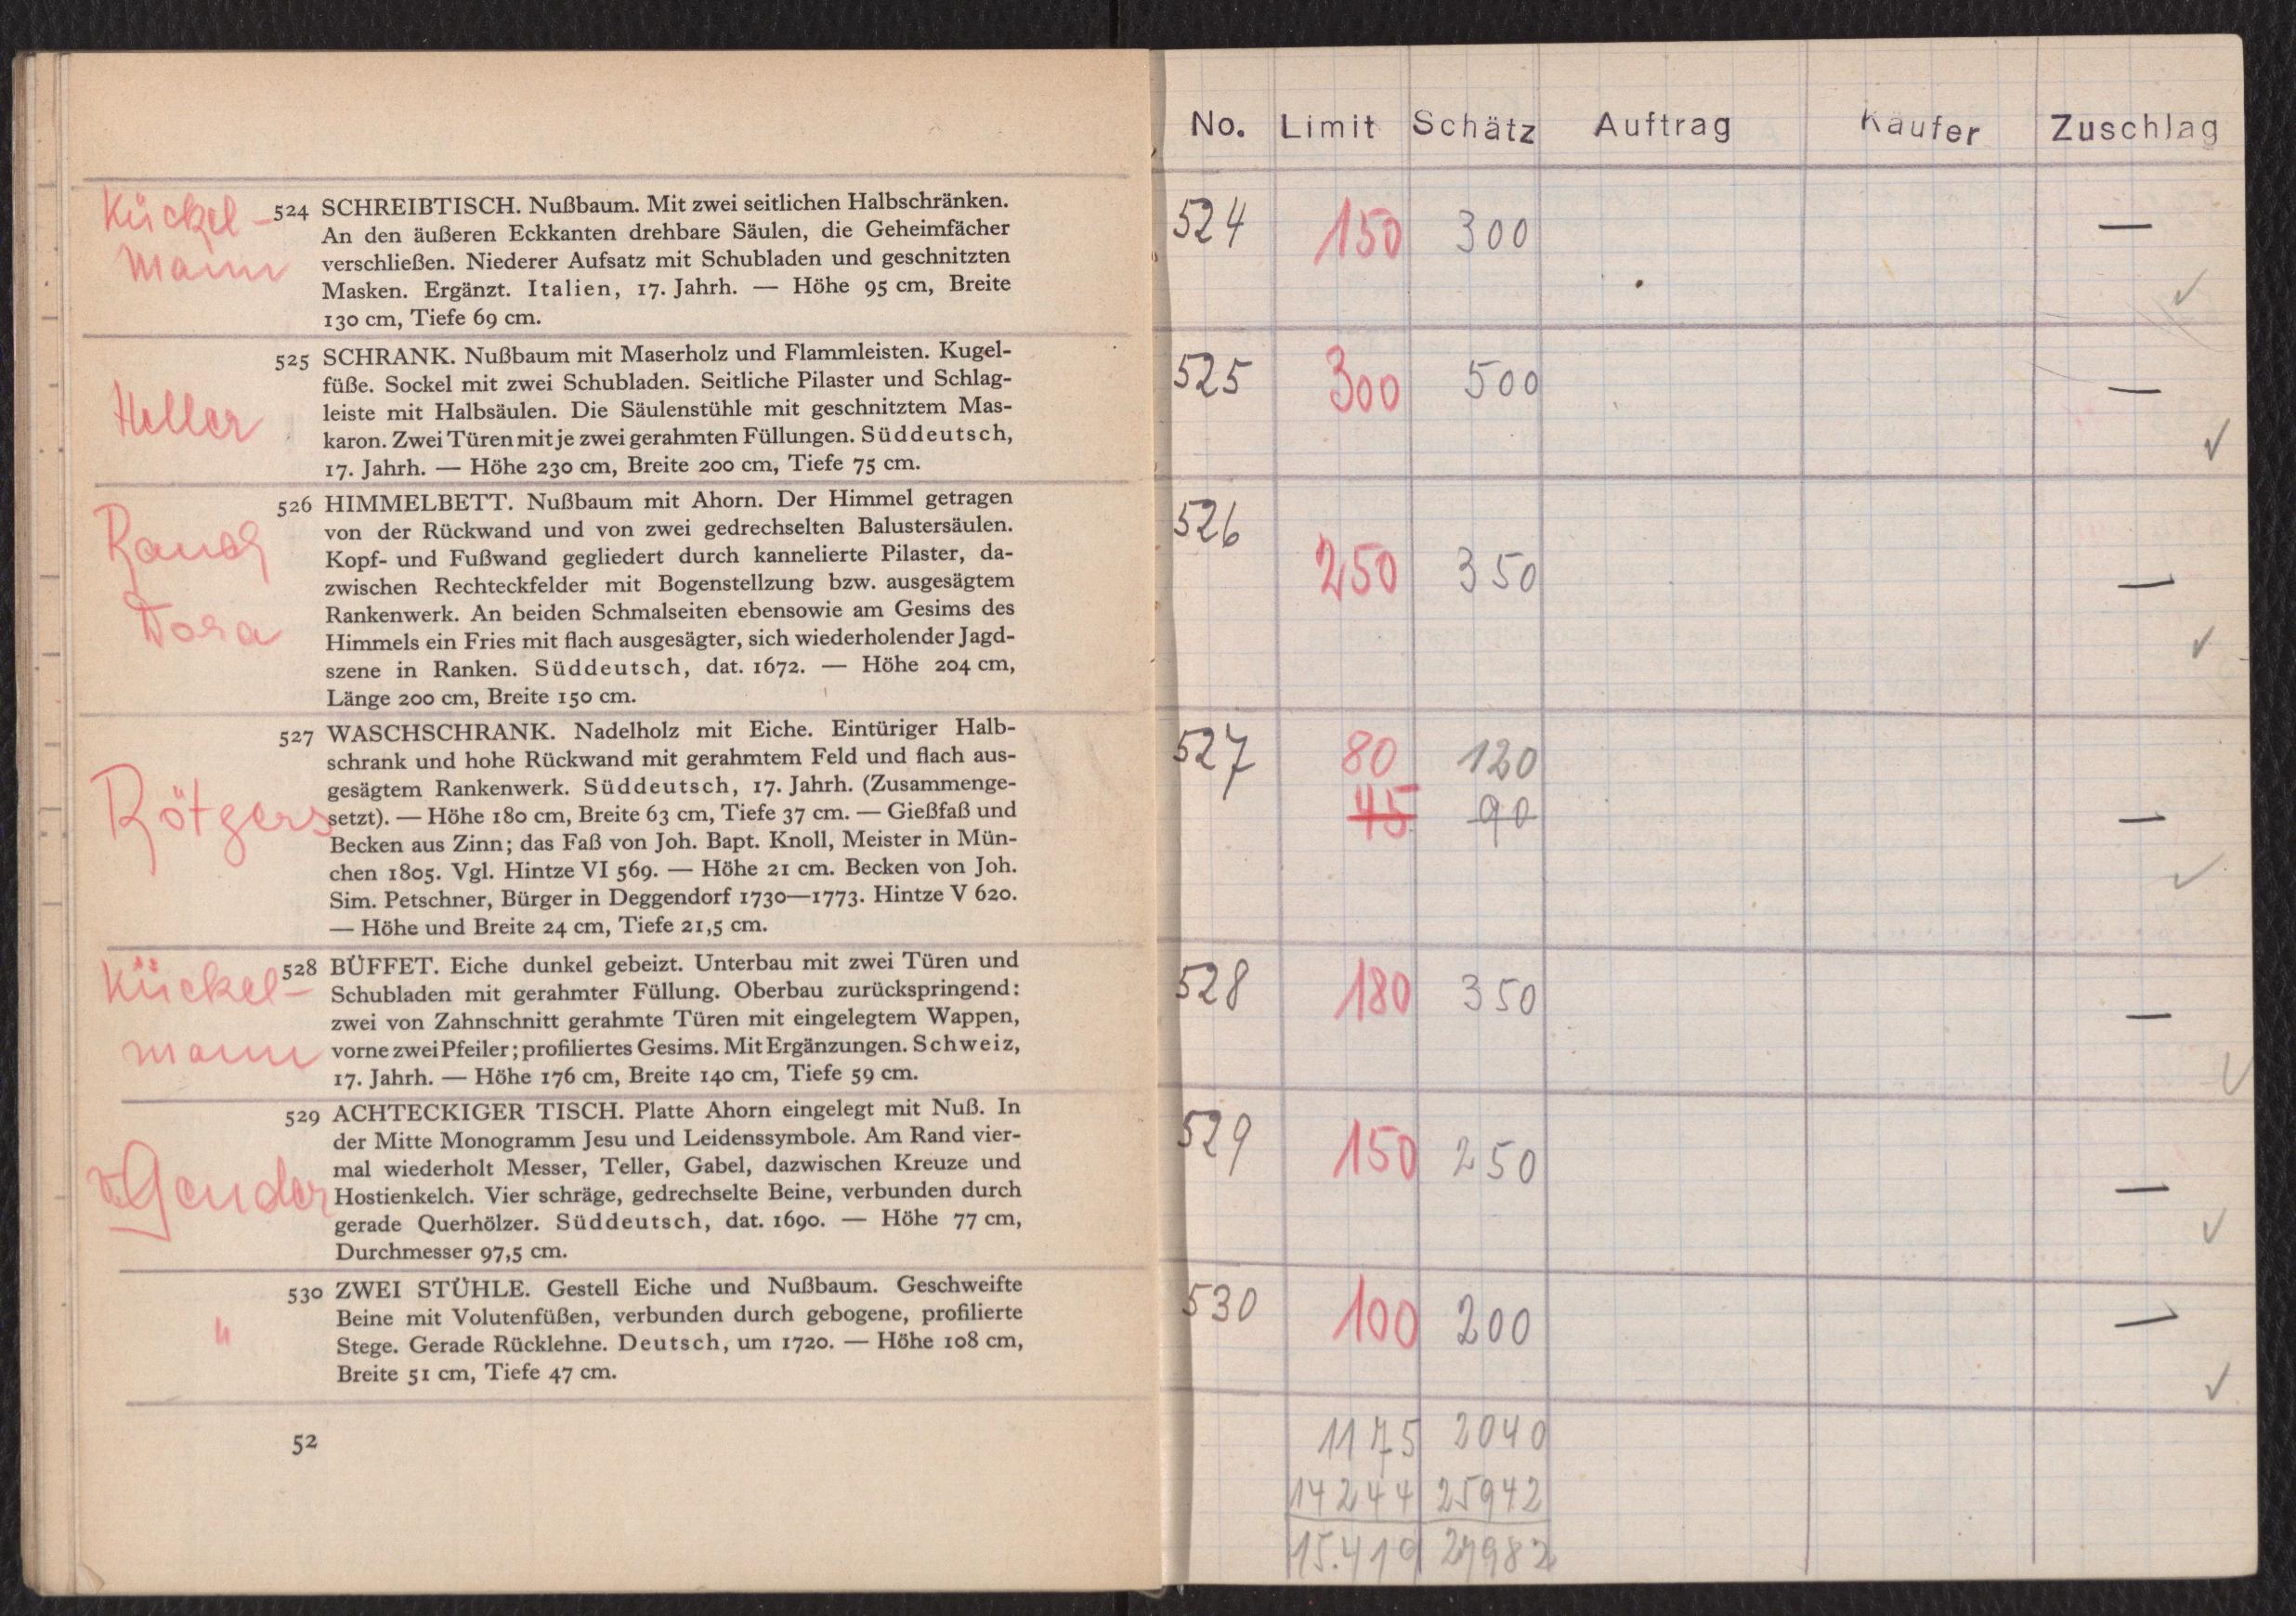 Kückel-
mann
524 SCHREIBTISCH. Nußbaum. Mit zwei seitlichen Halbschränken.
An den äußeren Eckkanten drehbare Säulen, die Geheimfächer
verschließen. Niederer Aufsatz mit Schubladen und geschnitzten
Masken. Ergänzt. Italien, 17. Jahrh. — Höhe 95 cm, Breite
130 cm, Tiefe 69 cm.
Heller
525 SCHRANK. Nußbaum mit Maserholz und Flammleisten. Kugel-
füße. Sockel mit zwei Schubladen. Seitliche Pilaster und Schlag-
leiste mit Halbsäulen. Die Säulenstühle mit geschnitztem Mas-
karon. Zwei Türen mit je zwei gerahmten Füllungen. Süddeutsch,
17. Jahrh. — Höhe 230 cm, Breite 200 cm, Tiefe 75 cm.
Dora
526 HIMMELBETT. Nußbaum mit Ahorn. Der Himmel getragen
von der Rückwand und von zwei gedrechselten Balustersäulen.
Kopf- und Fußwand gegliedert durch kannelierte Pilaster, da-
zwischen Rechteckfelder mit Bogenstellzung bzw. ausgesägtem
Rankenwerk. An beiden Schmalseiten ebensowie am Gesims des
Himmels ein Fries mit flach ausgesägter, sich wiederholender Jagd-
szene in Ranken. Süddeutsch, dat. 1672. — Höhe 204 cm,
Länge 200 cm, Breite 150 cm.
Rötgers
527 WASCHSCHRANK. Nadelholz mit Eiche. Eintüriger Halb-
schrank und hohe Rückwand mit gerahmtem Feld und flach aus-
gesägtem Rankenwerk. Süddeutsch, 17. Jahrh. (Zusammenge-
setzt). — Höhe 180 cm, Breite 63 cm, Tiefe 37 cm. — Gießfaß und
Becken aus Zinn; das Faß von Joh. Bapt. Knoll, Meister in Mün-
chen 1805. Vgl. Hintze VI 569. — Höhe 21 cm. Becken von Joh.
Sim. Petschner, Bürger in Deggendorf 1730—1773. Hintze V 620.
— Höhe und Breite 24 cm, Tiefe 21,5 cm.
Kückel-
mann
528 BÜFFET. Eiche dunkel gebeizt. Unterbau mit zwei Türen und
Schubladen mit gerahmter Füllung. Oberbau zurückspringend:
zwei von Zahnschnitt gerahmte Türen mit eingelegtem Wappen,
vorne zwei Pfeiler; profiliertes Gesims. Mit Ergänzungen. Schweiz,
17. Jahrh. — Höhe 176 cm, Breite 140 cm, Tiefe 59 cm.
529 ACHTECKIGER TISCH. Platte Ahorn eingelegt mit Nuß. In
der Mitte Monogramm Jesu und Leidenssymbole. Am Rand vier-
mal wiederholt Messer, Teller, Gabel, dazwischen Kreuze und
Hostienkelch. Vier schräge, gedrechselte Beine, verbunden durch
gerade Querhölzer. Süddeutsch, dat. 1690. — Höhe 77 cm,
Durchmesser 97,5 cm.
"
530 ZWEI STÜHLE. Gestell Eiche und Nußbaum. Geschweifte
Beine mit Volutenfüßen, verbunden durch gebogene, profilierte
Stege. Gerade Rücklehne. Deutsch, um 1720. — Höhe 108 cm,
Breite 51 cm, Tiefe 47 cm.
52
No. Limit Schätz Auftrag Käufer Zuschlag
524 150 300 — ✓
525 300 500 — ✓
526 250 350 — ✓
527 80 120
45 90 — ✓
528 180 350 — ✓
529 150 250 — ✓
530 100 200 — ✓
1175 2040
14244 25942
15.419 27982